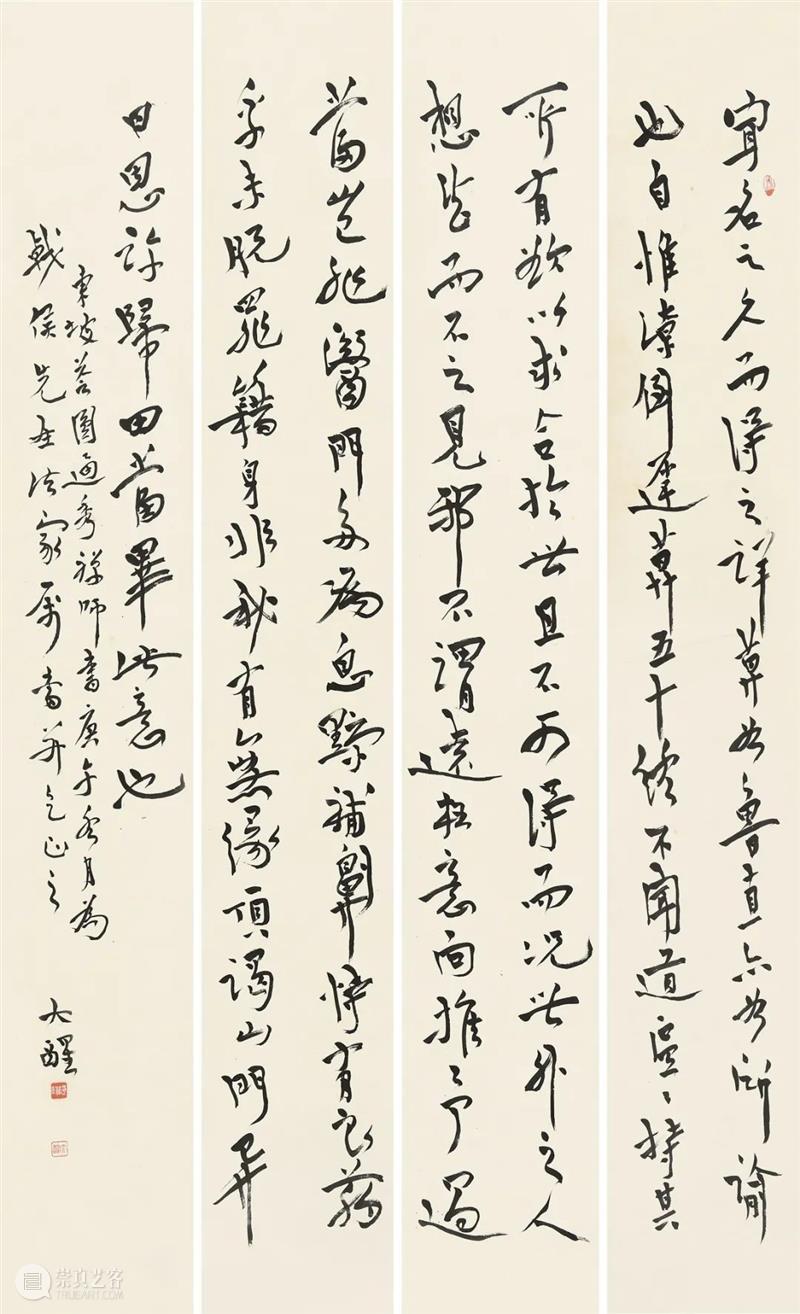 聞名之久而得之詳莫如魯直亦如所諭
也自惟潦倒遲暮五十終不聞道區〻持其
所有欲以求合於世且不可得而況世外之人
想望而不之見邪不謂遠枉意問推予過
當豈非醫門多疾息黥補劓恃有良藥
乎未脫罪籍身非我有無緣頂謁山門異
日恩許歸田當畢此意也
東坡答圓通秀禪師書庚午冬月為
戟侯先生法家屬書并乞正之
大醒
崇真艺客